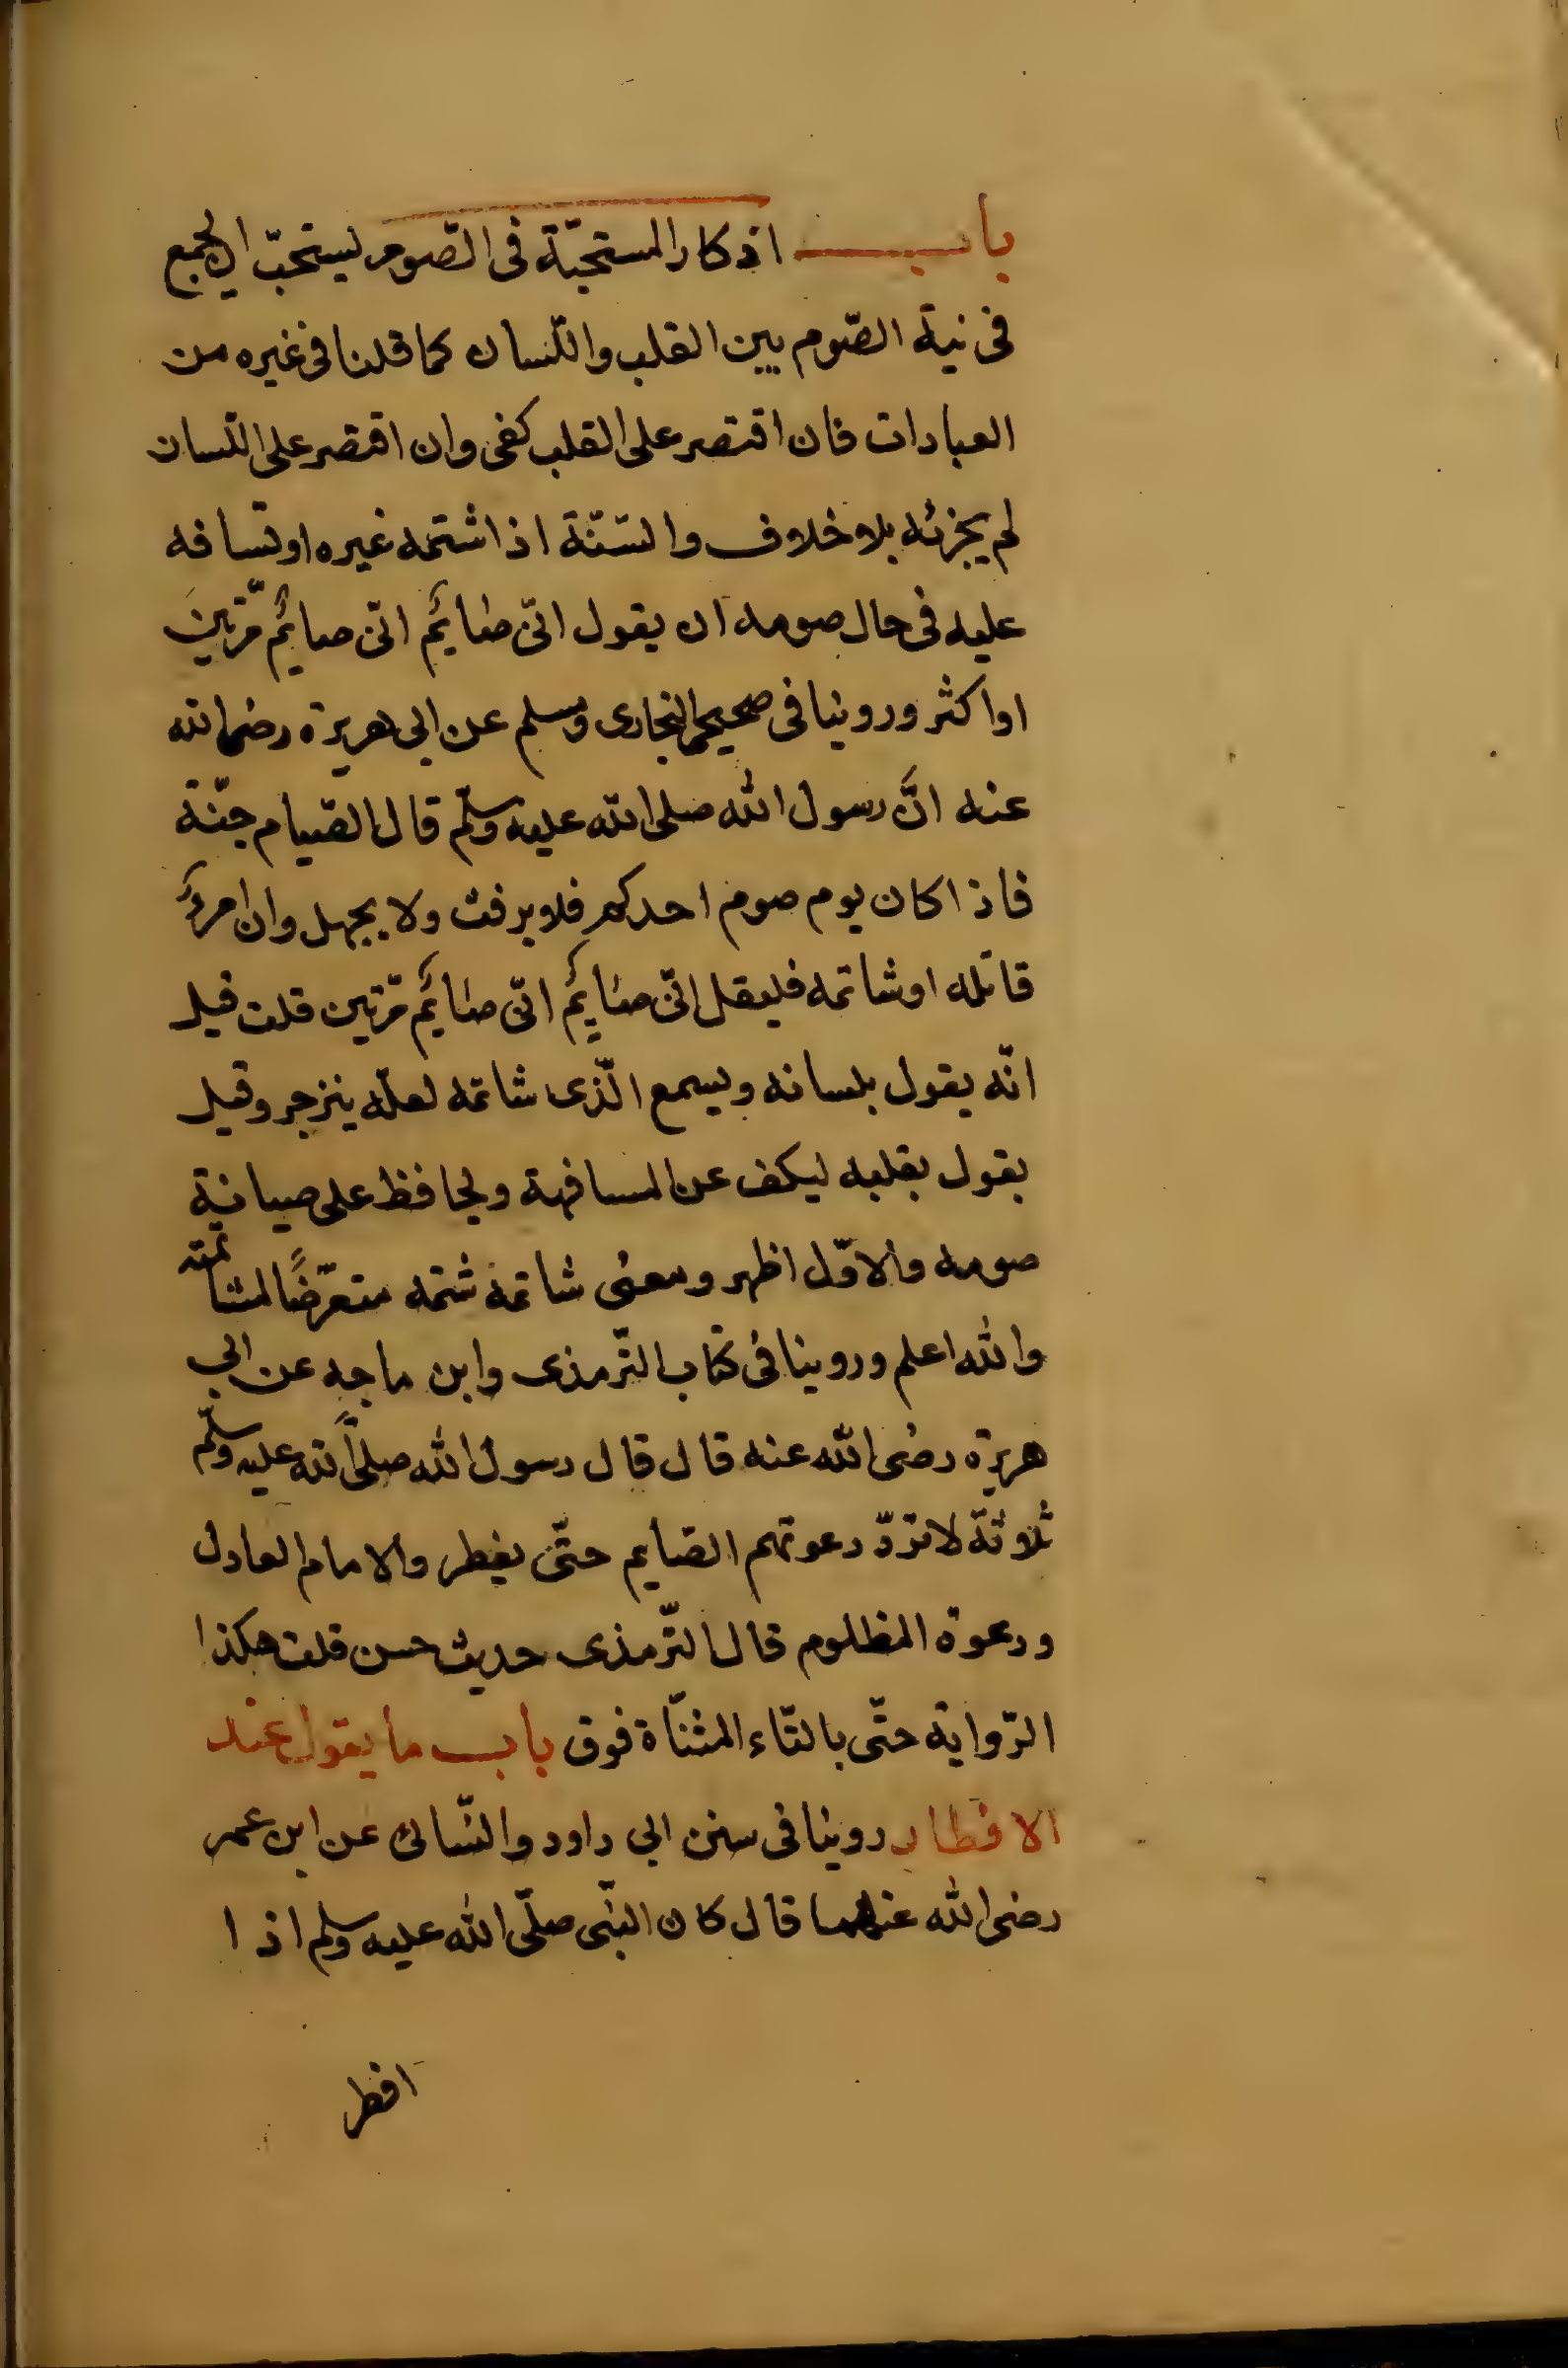 باب اذكار المستحبّة فى الصّوم يستحبّ ان يجمع
فى نية الصّوم بين القلب واللّسان كما قلنا فى غيره من
العبادات فان اقتصر على القلب كفى وان اقتصر على اللّسان
لم يجزئه بلا خلاف والسّنّة اذا شتمه غيره او تسافه
عليه فى حال صومه ان يقول انّى صائم انّى صائم مرّتين
او اكثر وروينا فى صحيحى البخارى ومسلم عن ابى هريرة رضى الله
عنه انّ رسول الله صلى الله عليه وسلّم قال الصّيام جنّة
فاذا كان يوم صوم احدكم فلا يرفث ولا يجهل وان امرؤ
قاتله او شاتمه فليقل انّى صائم انّى صائم مرّتين قلت قيل
انّه يقول بلسانه ويسمع الّذى شاتمه لعلّه ينزجر وقيل
يقول بقلبه ليكف عن المسافهة ويحافظ على صيانة
صومه والاوّل اظهر ومعنى شاتمه شتمه متعرّضًا لمشاتمته
والله اعلم وروينا فى كتاب التّرمذى وابن ماجه عن ابى
هريرة رضى الله عنه قال قال رسول الله صلّى الله عليه وسلّم
ثلاثة لا تردّ دعوتهم الصّايم حتّى يفطر والامام العادل
ودعوة المظلوم قال التّرمذى حديث حسن قلت هكذا
الرّواية حتّى بالتّاء المثنّاة فوق باب ما يقول عند
الافطار روينا فى سنن ابى داود والنّسائى عن ابن عمر
رضى الله عنهما قال كان النبّى صلّى الله عليه وسلم اذا
افطر